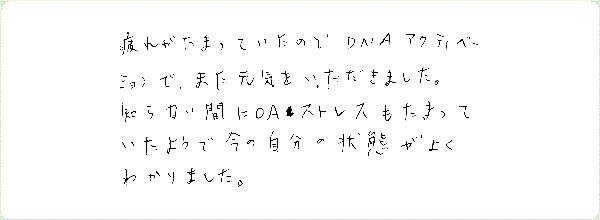 疲れがたまっていたので DNAアクティベー
ションで、また元気をいただきました。
知らない間にOA・ストレスもたまって
いたようで今の自分の状態がよく
わかりました。